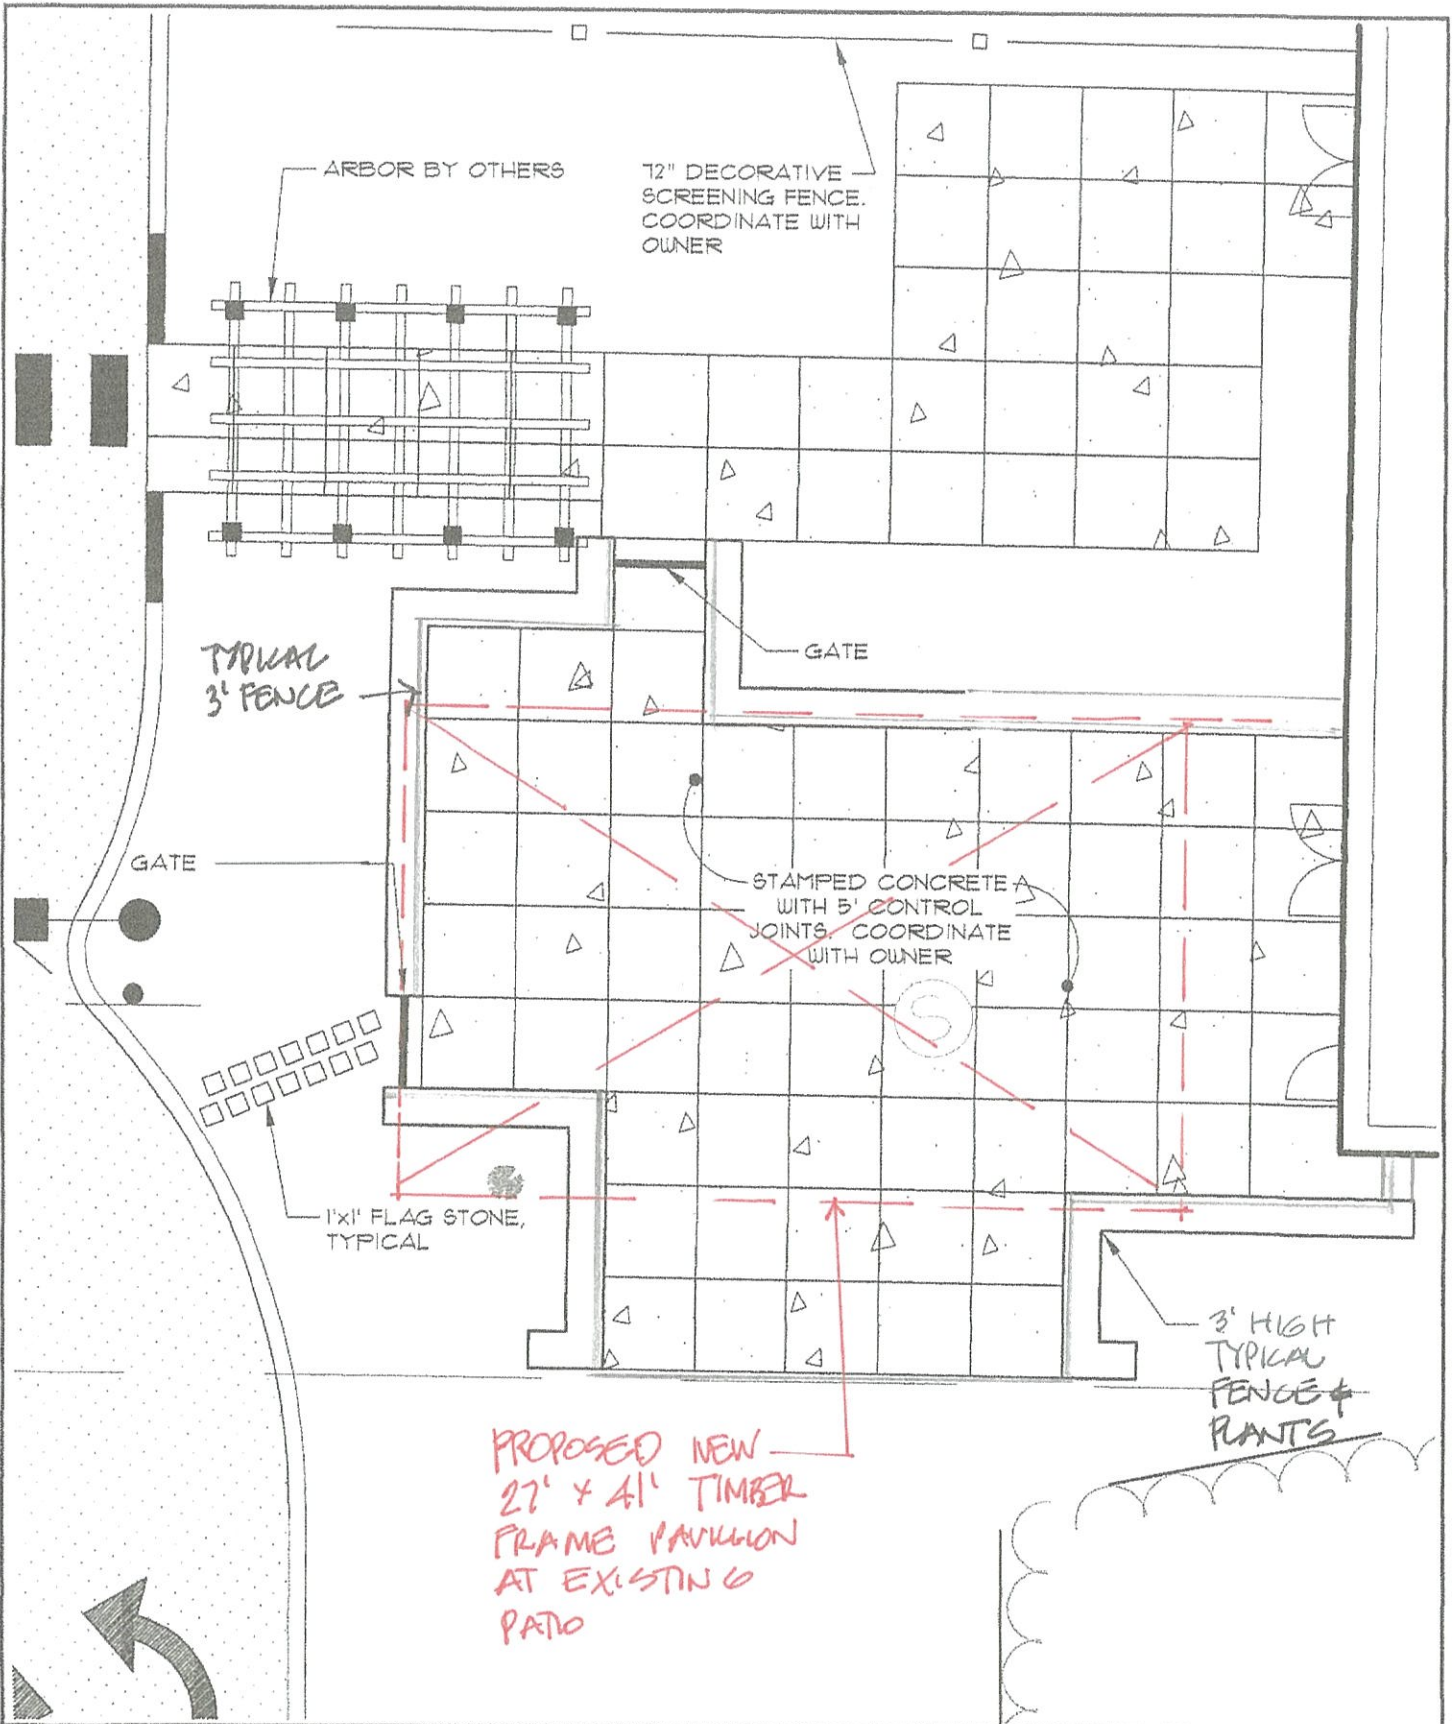 ARBOR BY OTHERS
72" DECORATIVE
SCREENING FENCE.
COORDINATE WITH
OWNER
GATE
TYPICAL
3' FENCE
GATE
STAMPED CONCRETE
WITH 5' CONTROL
JOINTS. COORDINATE
WITH OWNER
S
1'x1' FLAG STONE,
TYPICAL
3' HIGH
TYPICAL
FENCE &
PLANTS
PROPOSED NEW
27' x 41' TIMBER
FRAME PAVILION
AT EXISTING
PATIO